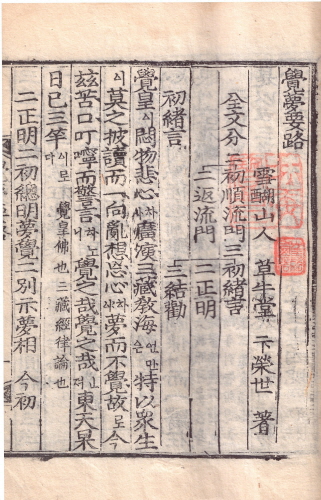 覺夢要路
雪醐山人 草牛堂 卞榮世 著
全文分二初順流門三初緒言
二正明
三結勸
二返流門
初緒言
覺皇시悶物悲心차廣演三藏敎海슨만特以衆生
시莫之披讀而一向亂想忘心사夢而不覺故로今
玆苦口叮嚀而警言차노니覺之哉覺之哉고東天杲
日已三竿다시로 覺皇佛也三藏經律論也
二正明二初總明夢覺二別示夢相 今初